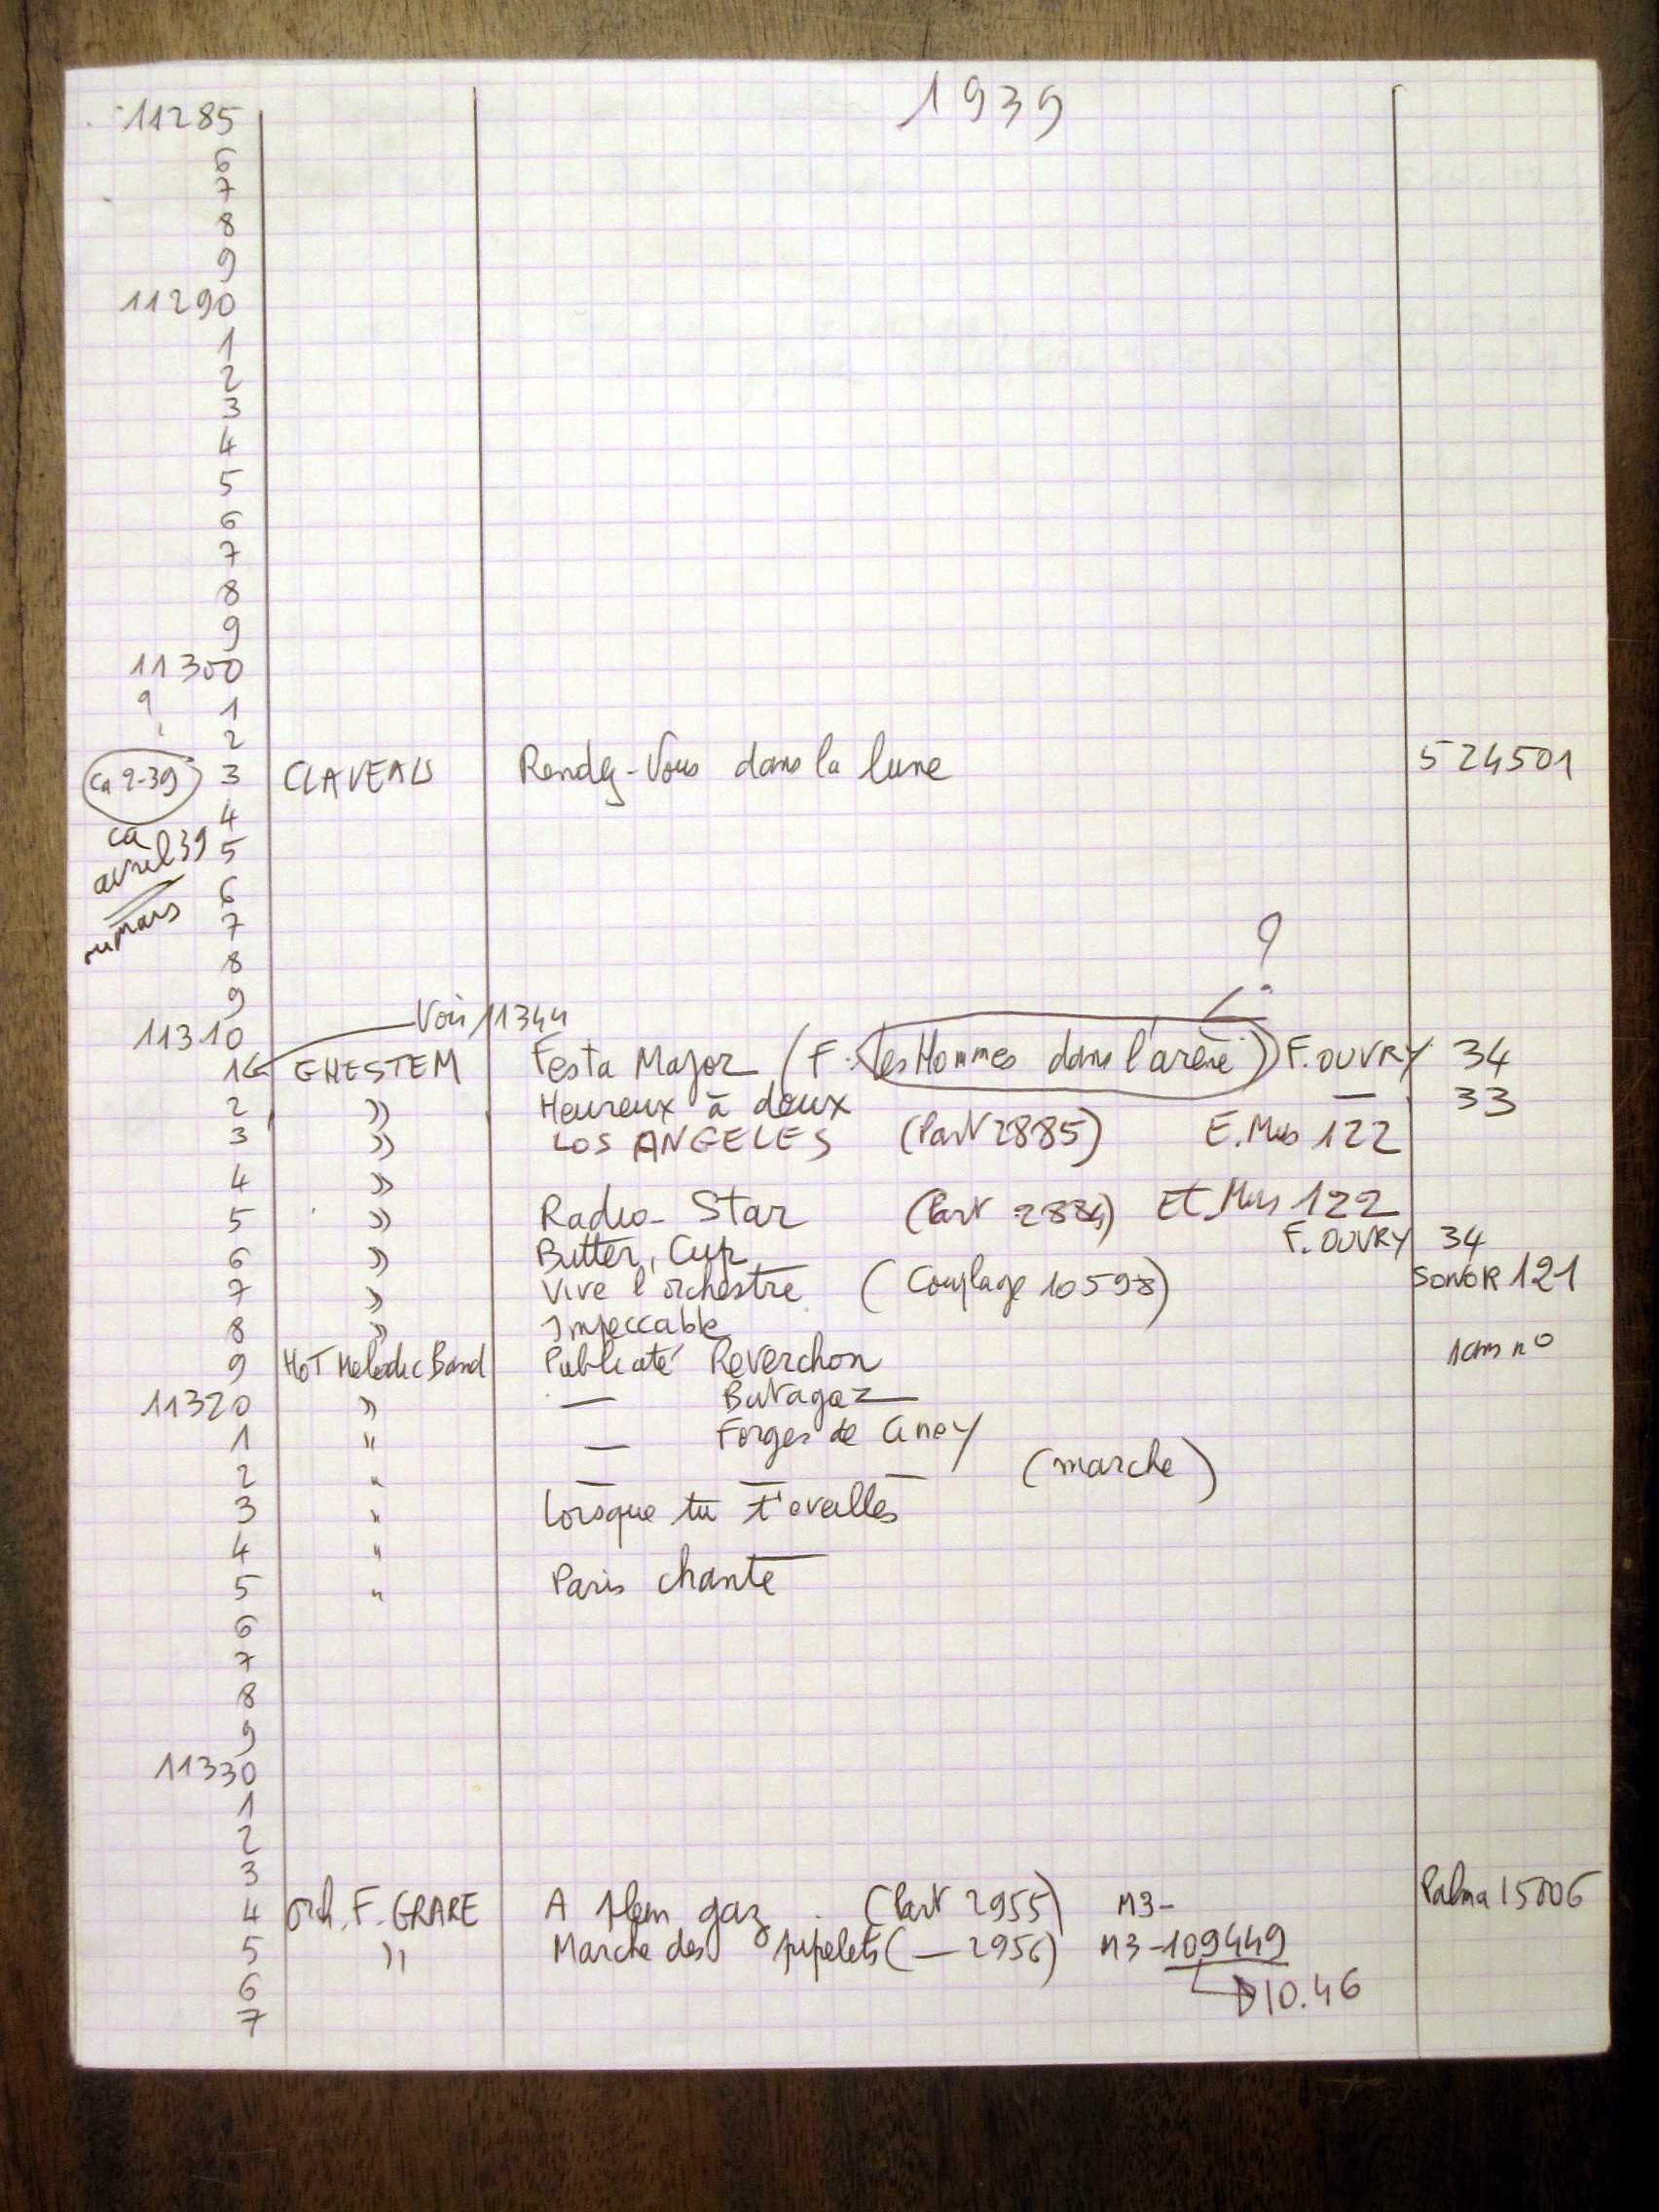 1939
11285
6
7
8
9
11290
1
2
3
4
5
6
7
8
9
11300
? 1
2
ca 2-39 3 CLAVEAU Rendez-Vous dans la lune 524501
4
ca avril 39 5
6
ou mars 7
8 ?
9
Voir 11344
11310
1 GHESTEM Festa Major (F. Les Hommes dans l'arène) F. OUVRY 34
2 » Heureux à deux — 33
3 » LOS ANGELES (Part 2885) E. Mus 122
4 »
5 » Radio-Star (Part 2884) Et. Mus 122
6 » Butter, Cup F. OUVRY 34
7 » Vive l'orchestre (Couplage 10598) SONOR 121
8 » Impeccable
9 HOT Melodic Band Publicité Reverchon sans n°
11320 » — Butagaz
1 " — Forges de Ciney
2 " — — — (marche)
3 " Lorsque tu t'eveilles
4 "
5 " Paris chante
6
7
8
9
11330
1
2
3
4 Orch. F. GRARE A plein gaz (Part 2955) M3- Palma 15006
5 » Marche des pipelets (— 2956) M3-109449
6 10.46
7